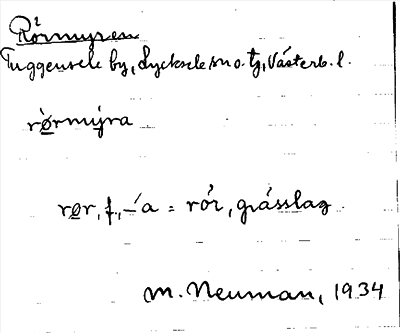 Rörmyren
Tuggensele by, Lycksele sn o. tg, Västerb. l.
rö̀rmýra
rør, f., -ı́a = rör, grässlag
M. Neuman, 1934